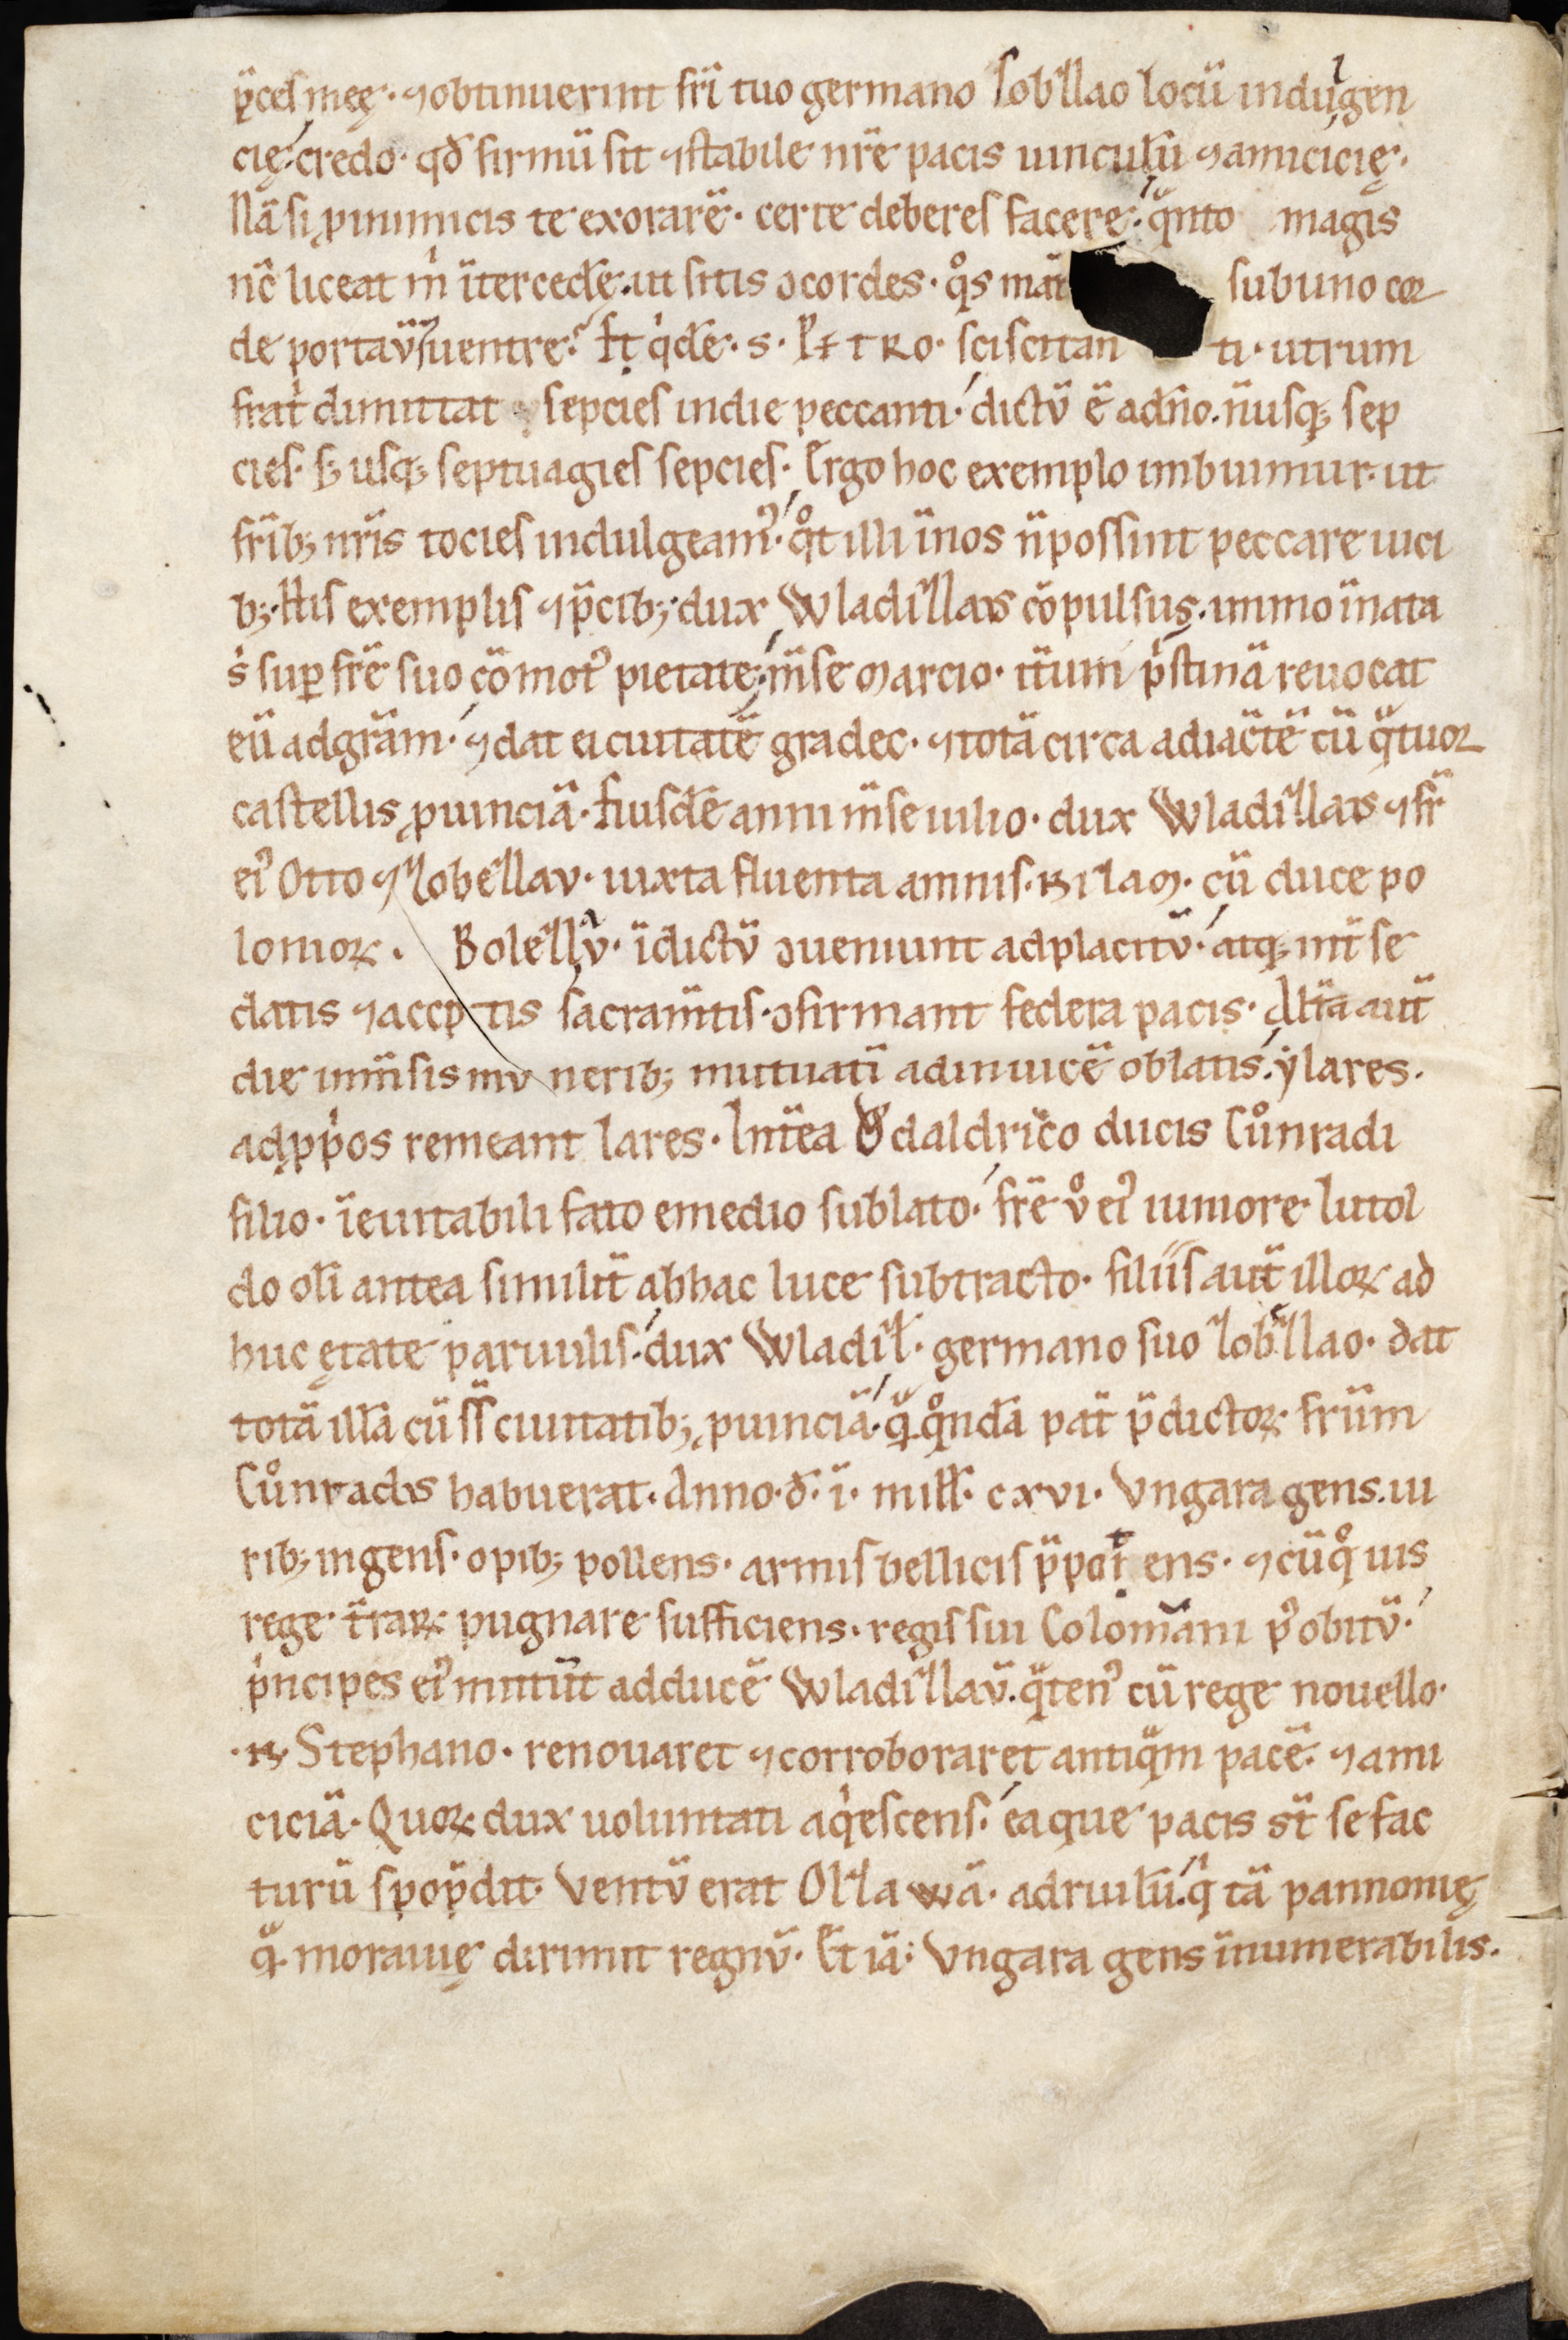 p̈ces meę· ⁊obtinuerint fr̄i tuo germano Sob'llao locū indulgen
cię· credo· qd̄ firmū sit ⁊stabile nr̄e pacis uinculū ⁊amicicię·
Nā si ꝓinimicis te exorarē· certe deberes facere· qᵃnto magis
nc̄ liceat m̄ īterceder̄e· ut sitis ↄcordes· qͦs māt sub uno cor
de portaū uentre· Et qͥdē· s· PETRO· sciscitan ti· utrum
frat̄ dimittat sepcies indie peccanti· dictū ē adn̄o· n̄usq; sep
cies· s; usq; septuagies sepcies· Ergo hoc exemplo imbuimur· ut
fr̄ib; nr̄is tocies indulgeam᾽· qͦt illi īnos n̄possint peccare uici
b;· His exemplis ⁊p̈cib;· dux Wladizlaus cōpulsus· immo īnata
sͥ suꝑ fr̄e suo cōmot᾽ pietate· m̄se Marcio· it̄um pͥstinā reuocat
eū adgr̄am· ⁊dat ei ciuitatē gradec· ⁊totā circa adiac̄tē cū qᵃtuor
castellis ꝓuinciā· Eiusdē anni m̄se iulio· dux Wladizlaus ⁊fr̄
ei᾽ Otto ⁊Sobezlau· iuxta fluenta amnis· NIZAM· cū duce po
lonioꝝ· Bolezlaū· īdictū ↄueniunt adplacitū· atq; int̄ se
datis ⁊accp tis sacram̄tis· ↄfirmant federa pacis· Alt̄a aut̄
die imm̄sis mu nerib; mutuatī adinuicē oblatis· ylares·
adꝓpͥos remeant lares· Int̄ea Odaldrico ducis Cuͦnradi
filio· īeuitabili fato emedio sublato· fr̄e uͦ ei᾽ iuniore lutol
do oli̅ antea similit̄ abhac luce subtracto· filiis aut̄ illoꝝ ad
huc ętate paruulis· dux Wladizl̄· germano suo Sob'zlao· dat
totā illā cū ss̄ ciuitatib; ꝓuinciā· qᵃ qͦndā pat̄ p̈dictoꝝ frūm
Cuͦnradus habuerat· Anno· d̄· ī· mill̄· cxvi· Vngara gens· ui
rib; ingens· opib; pollens· armis bellicis p̈potens· ⁊cūqͦ uis
rege t̄raꝝ pugnare sufficiens· regis sui Colomanni p᾽ obitū·
pͥncipes ei᾽ mittūt adducē Wladizlaū· qᵃten᾽ cū rege nouello·
·N· Stephano· renouaret ⁊corroboraret antiqᵃm pacē· ⁊ami
ciciā· Quoꝝ dux uoluntati aqͥescens· ea que pacis st̄ se fac
turū spopōdit· Ventū erat Olzawā· adriuulū· qͥ tā pannonię
qᵃ morauię dirimit regnū· Et iā· Vngara gens īnumerabilis·